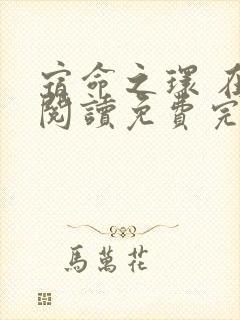 宿命之環 在
閱讀免費完
馬萬花